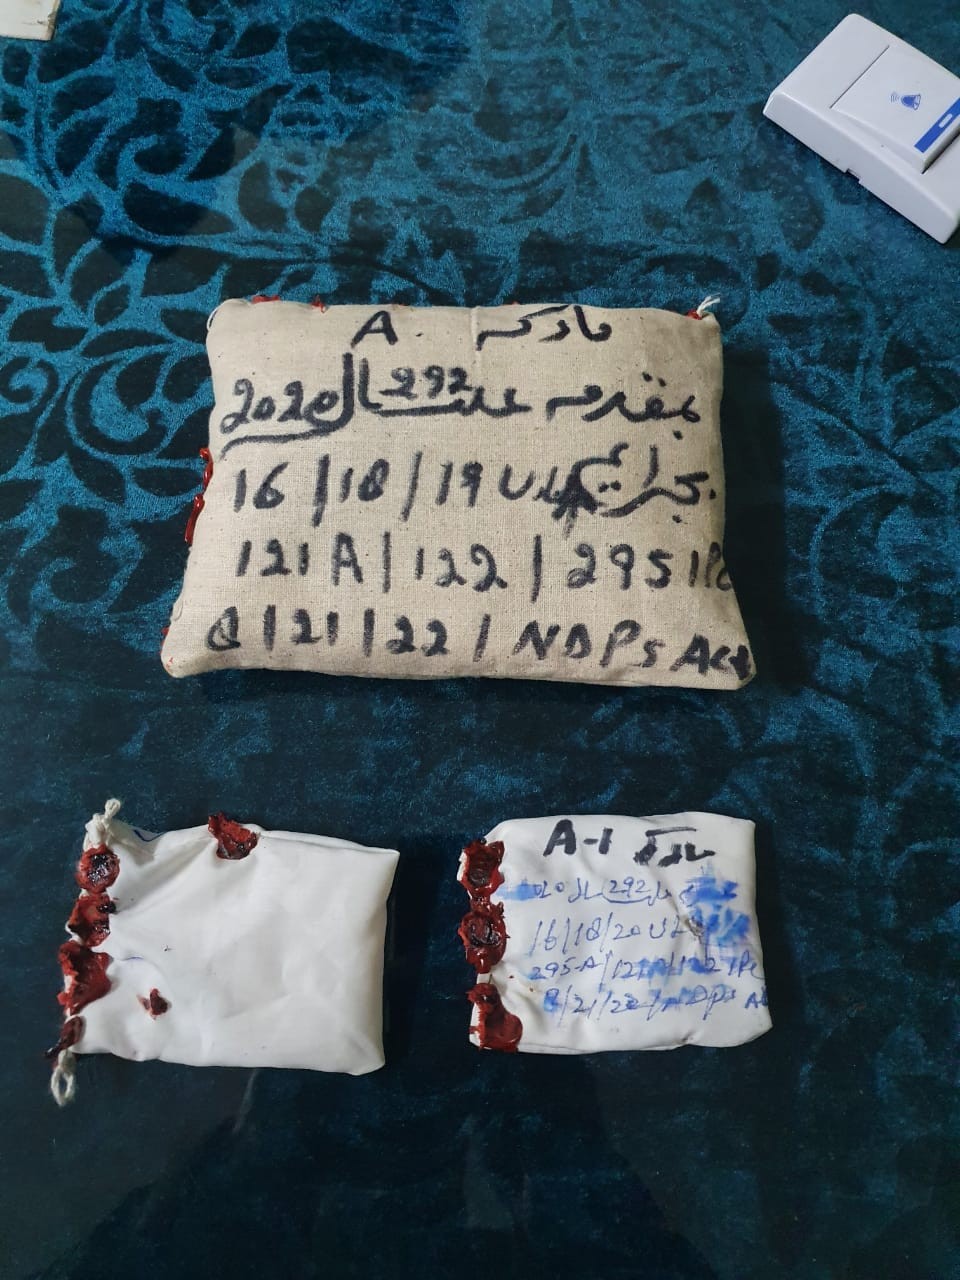 مارکہ A.
بمقدمہ علت 292 سال 2020
بجرائم 16/18/19 ULA
121A/122/295 IPC
8/21/22/NDPS Act
مارکہ A-1
292 سال
16/18/20 UL
295-A/121A/122 IPC
8/21/22/NDPS A